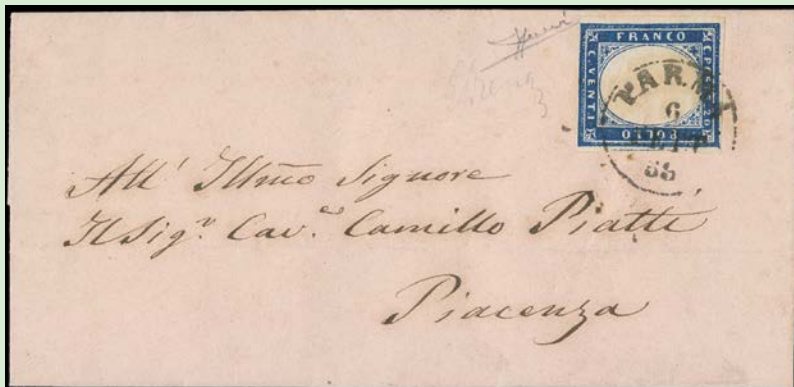 FRANCO
C. VENTI
C. POSTE 20
BOLLO
PARMA
6
SETT
All' Illmo Signore
Il Sigr. Cave. Camillo Piatti
Piacenza